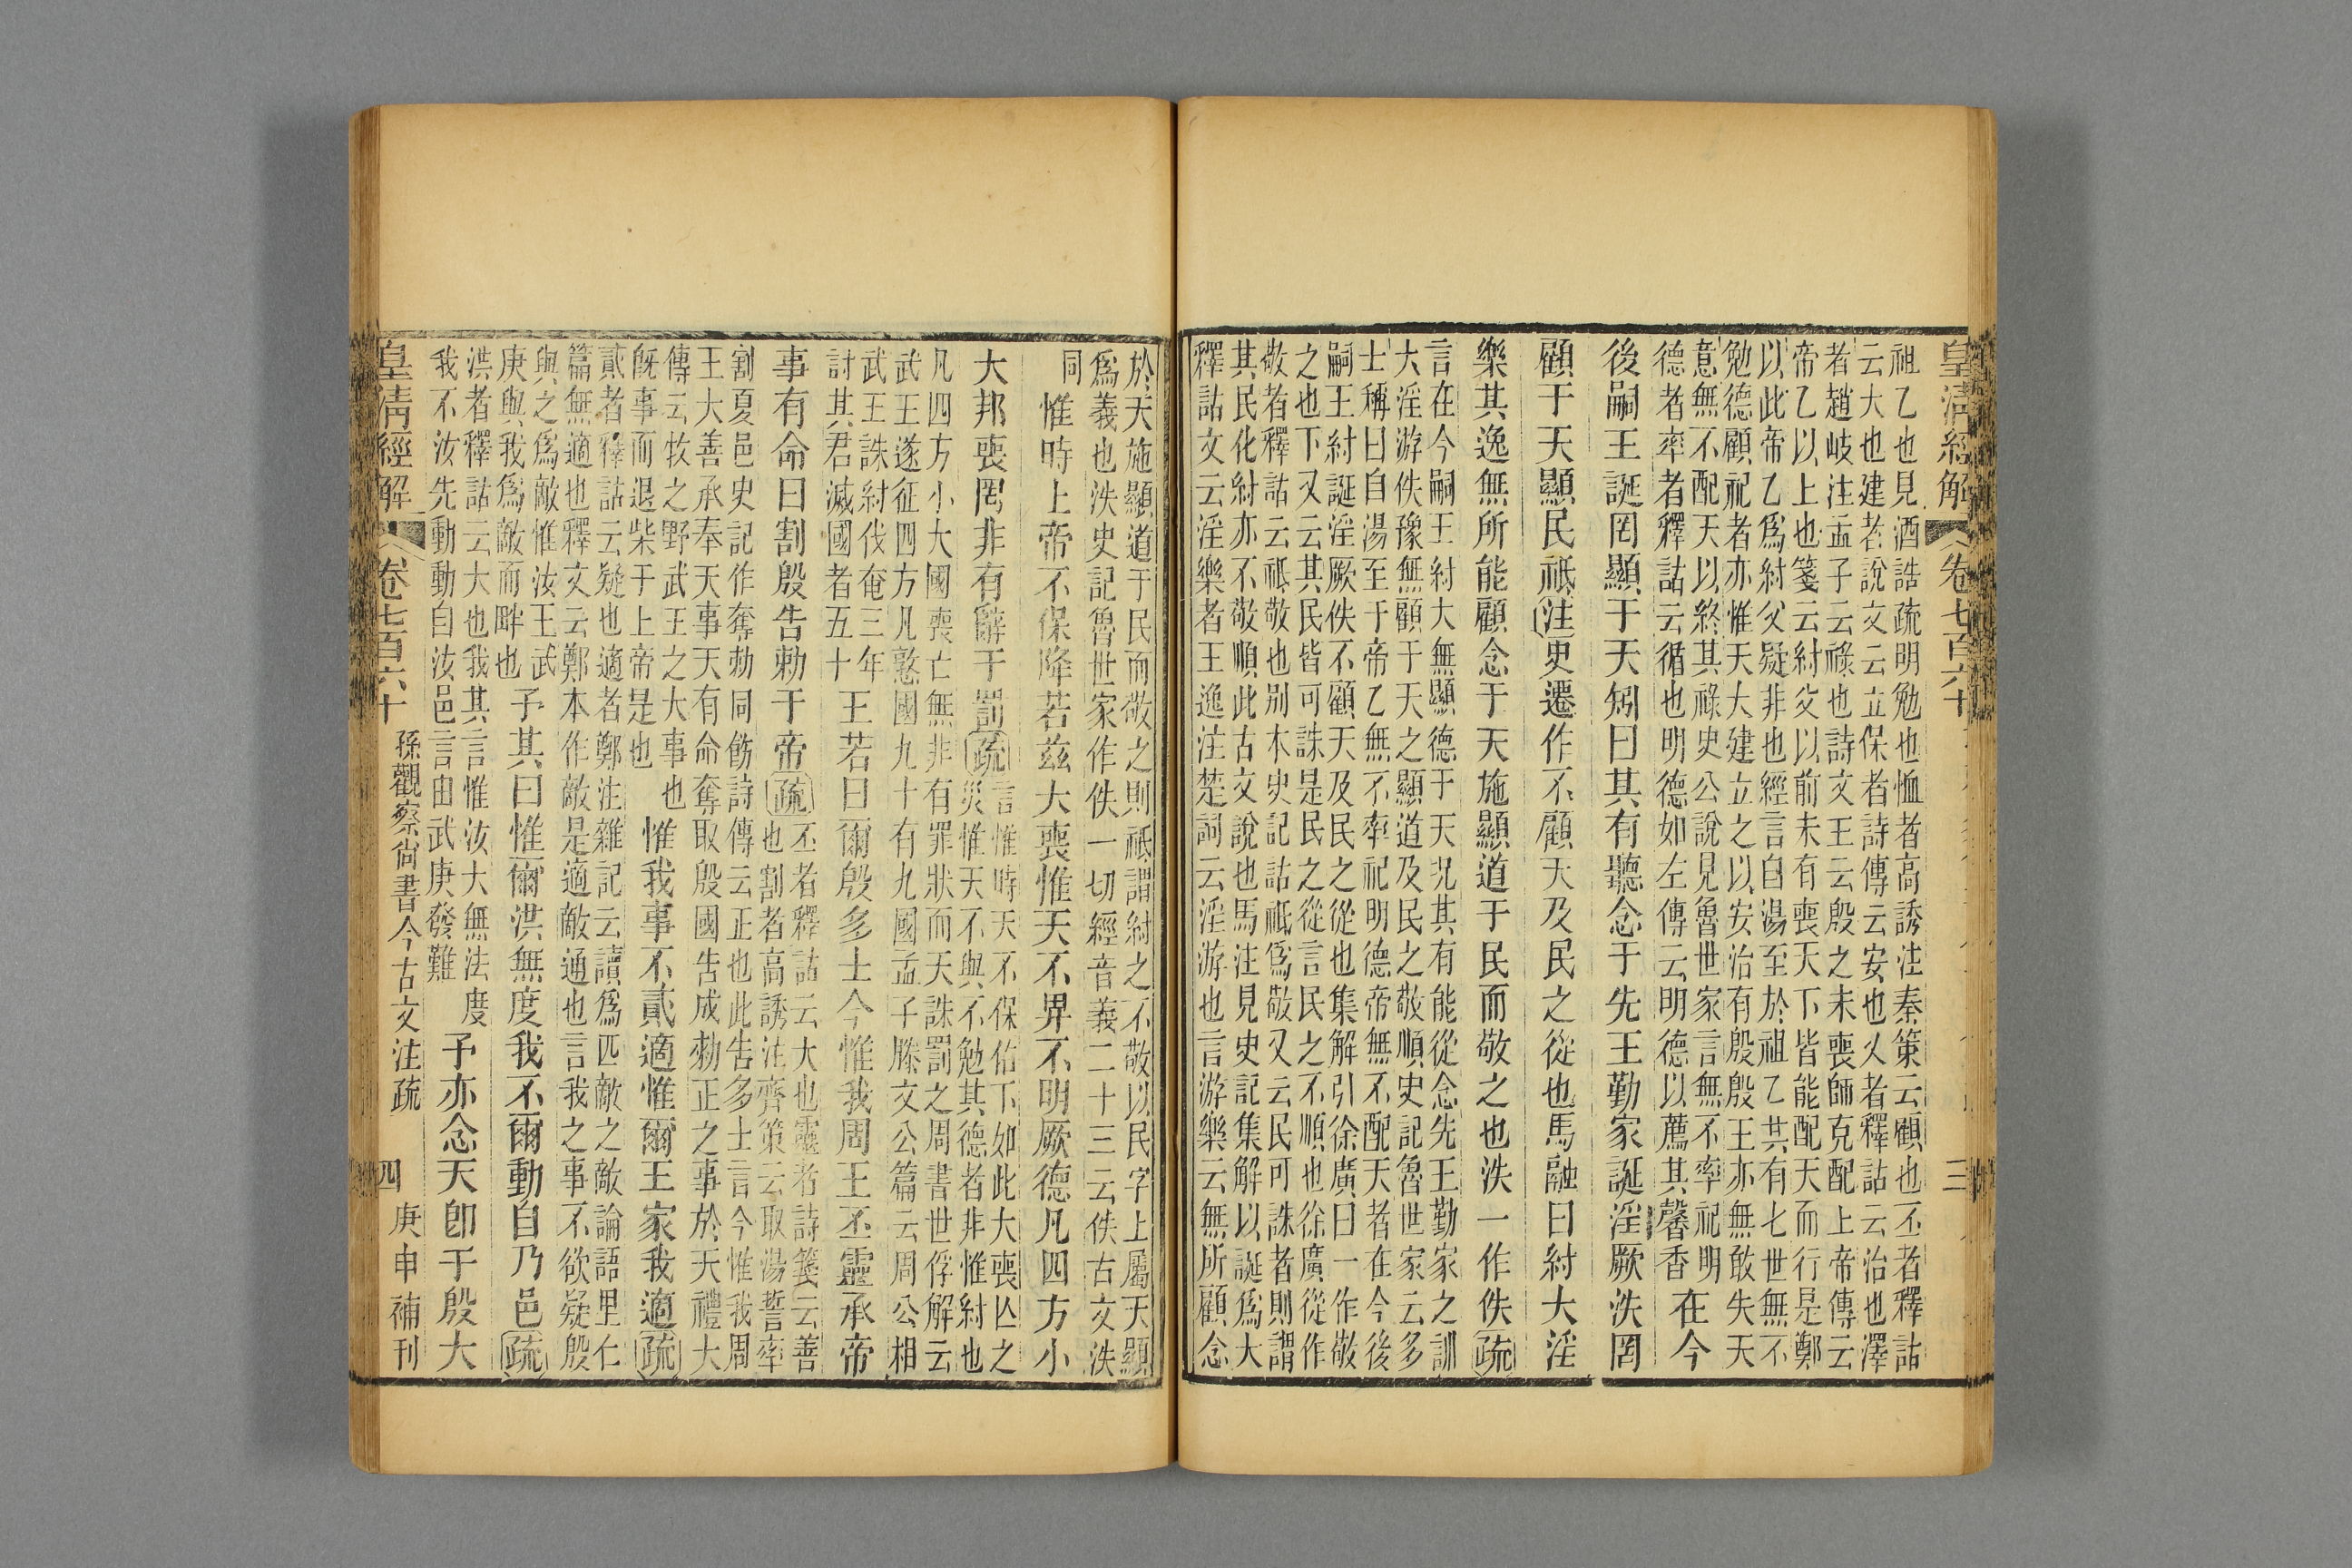 皇清經解 卷七百六十 三
祖乙也見酒誥疏明勉也恤者高誘注秦策云顧也丕者釋詁
云大也建者說文云立保者詩傳云安也乂者釋詁云治也澤
者趙岐注孟子云祿也詩文王云殷之未喪師克配上帝傳云
帝乙以上也箋云紂父以前未有喪天下皆能配天而行是鄭
以此帝乙爲紂父疑非也經言自湯至於祖乙其有七世無不
勉德顧祀者亦惟天大建立之以安治有殷殷王亦無敢失天
意無不配天以終其祿史公說見魯世家言無不率祀明
德者率者釋詁云循也明德如左傳云明德以薦其馨香
在今
後嗣王誕罔顯于天矧曰其有聽念于先王勤家誕淫厥泆罔
顧于天顯民祗注史遷作不顧天及民之從也馬融曰紂大淫
樂其逸無所能顧念于天施顯道于民而敬之也泆一作佚疏
言在今嗣王紂大無顯德于天況其有能從念先王勤家之訓
大淫游佚豫無顧于天之顯道及民之敬順史記魯世家云多
士稱曰自湯至于帝乙無不率祀明德帝無不配天者在今後
嗣王紂誕淫厥佚不顧天及民之從也集解引徐廣曰一作敬
之也下又云其民皆可誅是民之從言民之不順也徐廣從作
敬者釋詁云祗敬也别本史記詁祗爲敬又云民可誅者則謂
其民化紂亦不敬順此古文說也馬注見史記集解以誕爲大
釋詁文云淫樂者王逸注楚詞云淫游也言游樂云無所顧念
於天施顯道于民而敬之則祗謂紂之不敬以民字上屬天顯
爲義也泆史記魯世家作佚一切經音義二十三云佚古文泆
同
惟時上帝不保降若茲大喪惟天不畀不明厥德凡四方小
大邦喪罔非有辭于罰疏
言惟時天不保佑下如此大喪亾之
災惟天不與不勉其德者非惟紂也
凡四方小大國喪亡無非有罪狀而天誅罰之周書世俘解云
武王遂征四方凡憝國九十有九國孟子滕文公篇云周公相
武王誅紂伐奄三年
討其君滅國者五十
王若曰爾殷多士今惟我周王丕靈承帝
事有命曰割殷告勅于帝疏
丕者釋詁云大也靈者詩箋云善
也割者高誘注齊策云取湯誓率
割夏邑史記作奪勅同飭詩傳云正也此告多士言今惟我周
王大善承奉天事天有命奪取殷國告成勅正之事於天禮大
傳云牧之野武王之大事也
旣事而退柴于上帝是也
惟我事不貳適惟爾王家我適疏
貳者釋詁云疑也適者鄭注雜記云讀爲匹敵之敵論語里仁
篇無適也釋文云鄭本作敵是適敵通也言我之事不欲疑殷
與之爲敵惟汝王武
庚與我爲敵而畔也
予其曰惟爾洪無度我不爾動自乃邑疏
洪者釋詁云大也我其言惟汝大無法度
我不汝先動動自汝邑言由武庚發難
予亦念天卽于殷大
皇清經解 卷七百六十 孫觀察尙書今古文注疏 四 庚申補刊